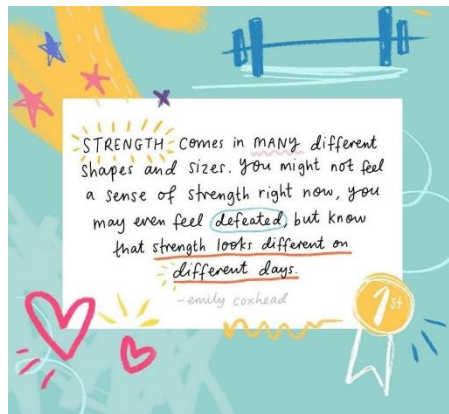 STRENGTH comes in MANY different
shapes and sizes. you might not feel
a sense of strength right now, you
may even feel defeated, but know
that strength looks different on
different days.
-emily coxhead
1st